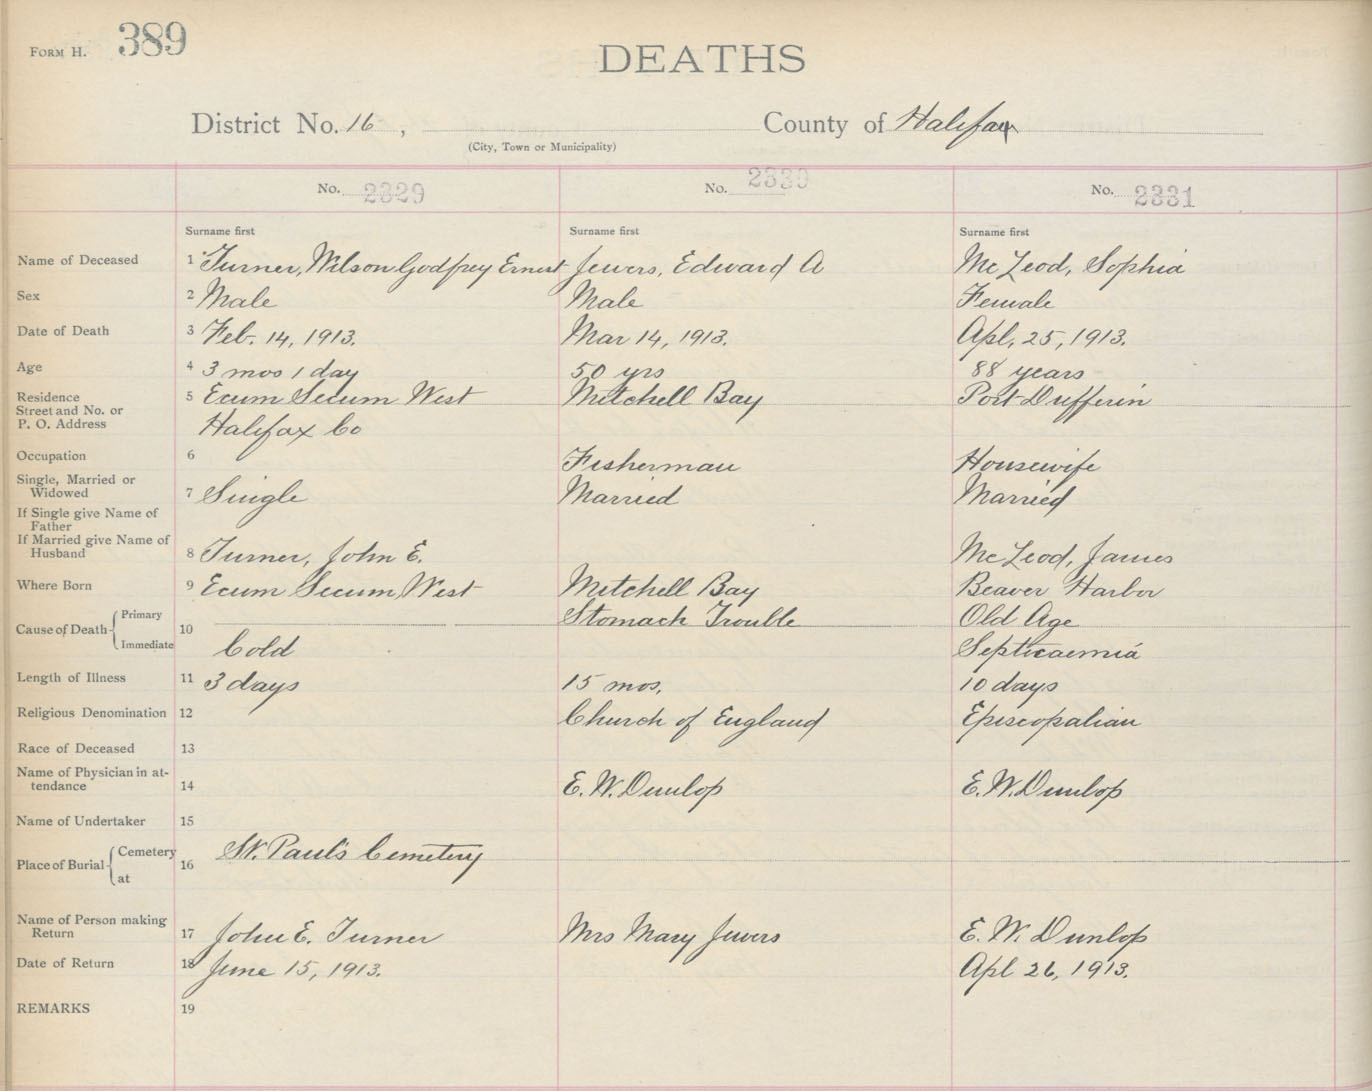 FORM H. 389
DEATHS
District No. 16 , County of Halifax
(City, Town or Municipality)
No. 2329 No. 2330 No. 2331
Surname first Surname first Surname first
Name of Deceased 1 Turner, Wilson Godfrey Ernest Jewers, Edward A McLeod, Sophia
Sex 2 Male Male Female
Date of Death 3 Feb. 14, 1913. Mar 14, 1913. Apl, 25, 1913.
Age 4 3 mos 1 day 50 yrs 88 years
Residence 5 Ecum Secum West Mitchell Bay Port Dufferin
Street and No. or
P. O. Address Halifax Co
Occupation 6 Fisherman Housewife
Single, Married or
Widowed 7 Single Married Married
If Single give Name of
Father
If Married give Name of
Husband 8 Turner, John E. McLeod, James
Where Born 9 Ecum Secum West Mitchell Bay Beaver Harbor
Cause of Death Primary 10 Stomach Trouble Old Age
Immediate Cold Septicaemia
Length of Illness 11 3 days 15 mos. 10 days
Religious Denomination 12 Church of England Episcopalian
Race of Deceased 13
Name of Physician in at-
tendance 14 E. W. Dunlop E. W. Dunlop
Name of Undertaker 15
Place of Burial Cemetery 16 St. Paul's Cemetery
at
Name of Person making
Return 17 John E. Turner Mrs Mary Jewers E. W. Dunlop
Date of Return 18 June 15, 1913. Apl 26, 1913.
REMARKS 19